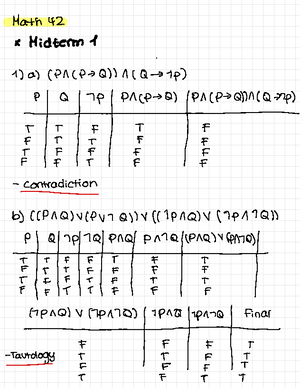 Math 42
* Midterm 1
1) a) (P∧(P→Q))∧(Q→¬P)
P Q ¬P P∧(P→Q) (P∧(P→Q))∧(Q→¬P)
T T F T F
F T T F F
T F F F F
F F T F F
- contradiction
b) ((P∧Q)∨(P∨¬Q))∨((¬P∧Q)∨(¬P∧¬Q))
P Q ¬P ¬Q P∧Q P∧¬Q (P∧Q)∨(P∧¬Q)
T T F F T F T
F T T F F F F
T F F T F T T
F F T T F F F
(¬P∧Q)∨(¬P∧¬Q) ¬P∧Q ¬P∧¬Q Final
F F F T
T T F T
F F F T
T F T T
- Tautology